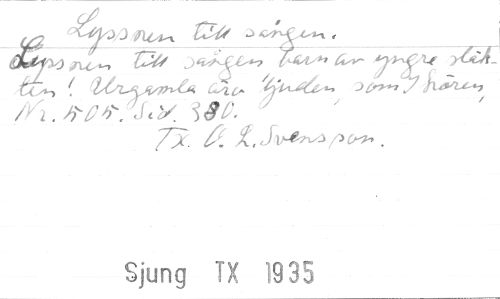 Lyssnen till sången.
Lyssnen till sången barn av yngre släk-
ten! Urgamla äro ljuden, som I hören,
Nr. 505. Sid. 380.
Tx. O. L. Svensson.
Sjung TX 1935